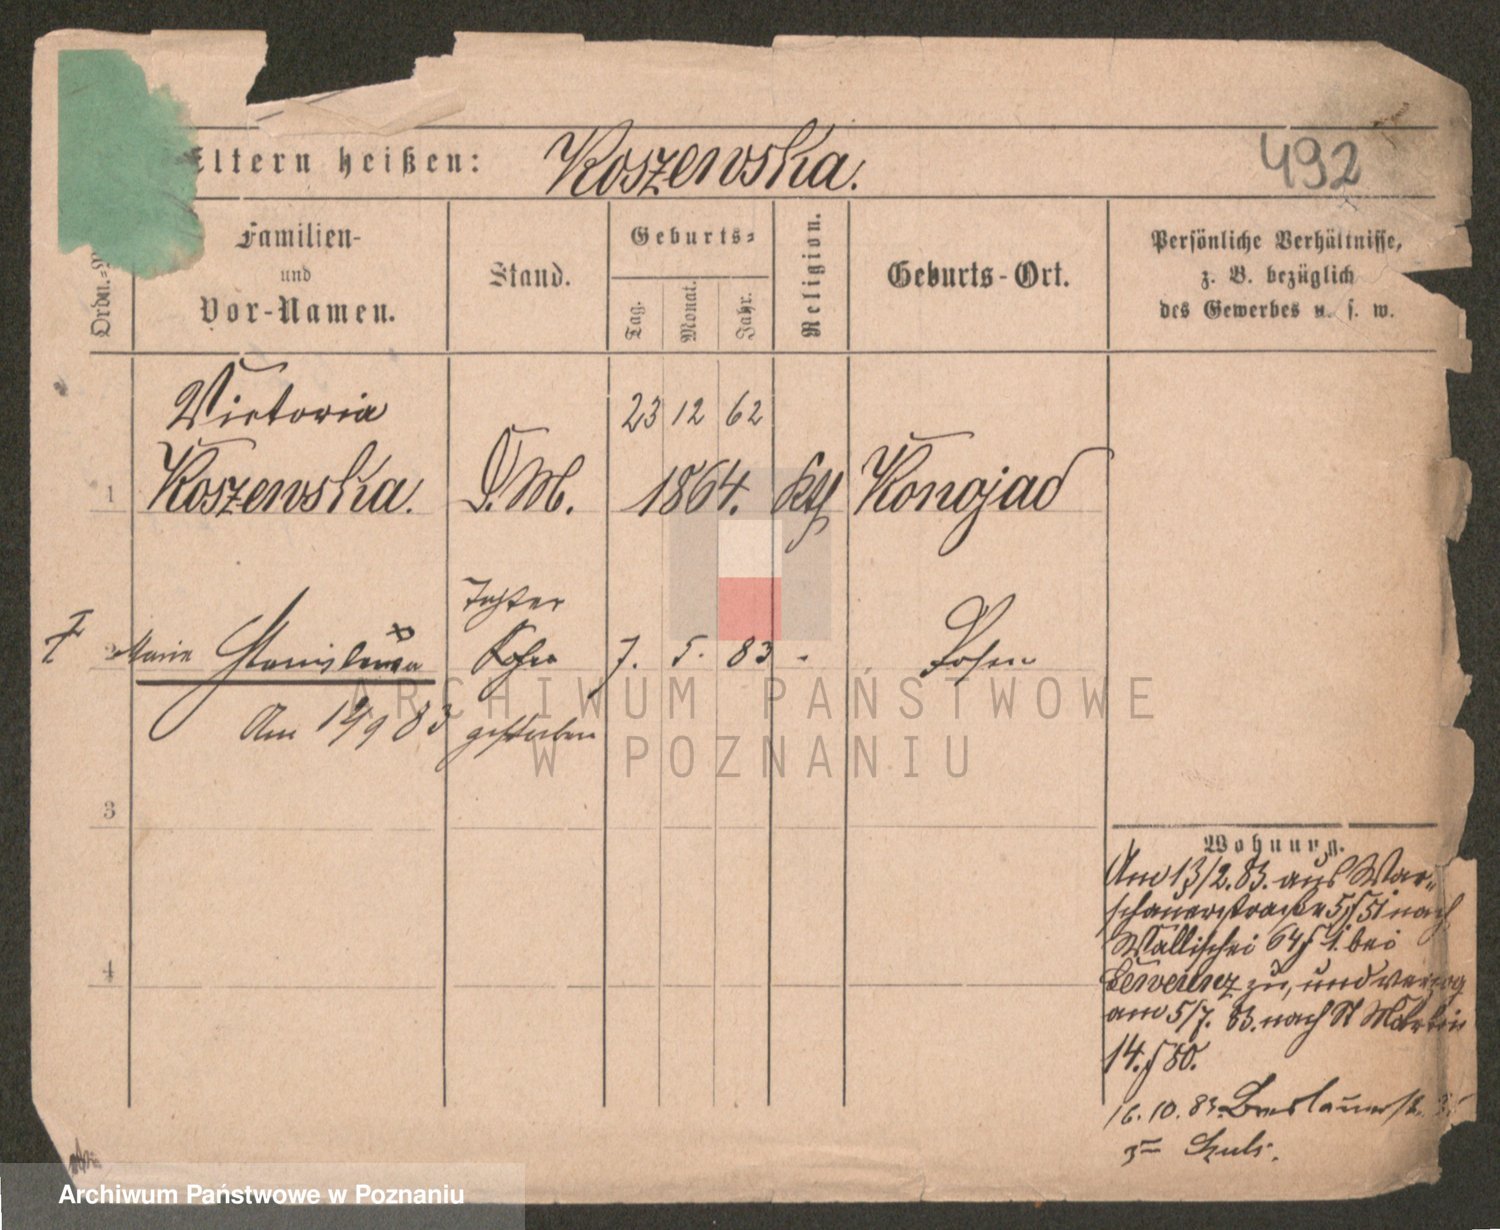 Eltern heißen: Koszewska. 492
Ordn.
Familien-
und
Vor-Namen.
Stand.
Geburts-
Tag. Monat. Jahr.
Religion.
Geburts-Ort.
Persönliche Verhältnisse,
z. B. bezüglich
des Gewerbes u. s. w.
Victoria 23 12 62
1 Koszewska. D. M. 1864. Kth Konojad
Tochter
2 Marie Stanislawa 7. 5. 83 - Posen
Am 14/9 83 gestorben
3
Wohnung.
Am 13/2. 83. aus War-
schauerstraße 5/51 nach
Wallischei 64/1. bei
zu, und verzog
am 5/7. 83. nach St Martin
14./80.
16.10.83. Breslauerst.
4
ARCHIWUM PAŃSTWOWE
W POZNANIU
Archiwum Państwowe w Poznaniu